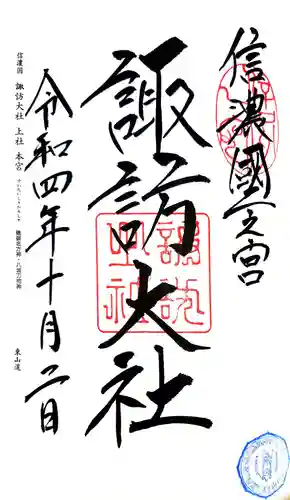 信濃國一之宮
諏訪大社
令和四年十月二日
信濃国 諏訪大社 上社 本宮
東山道